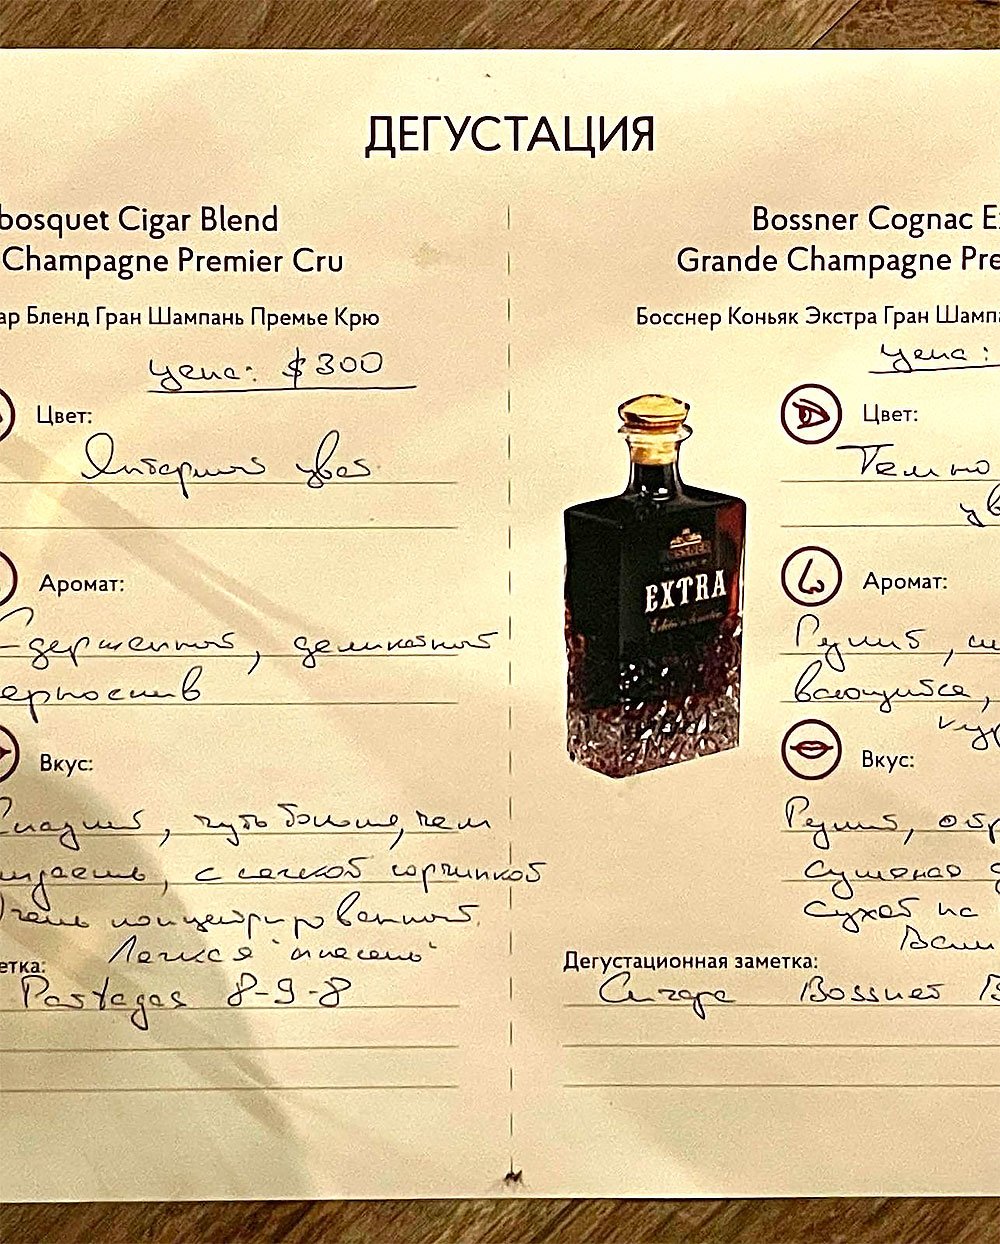 ДЕГУСТАЦИЯ
bosquet Cigar Blend
Champagne Premier Cru
ар Бленд Гран Шампань Премье Крю
цена: $300
Цвет:
Янтарный цвет
Аромат:
Сдержанный, деликатный
чернослив
Вкус:
Сладкий, чуть больше, чем
ожидаешь, с легкой горчинкой
Очень концентрированный.
Легкая
етка:
Partagas 8-9-8
Bossner Cognac Ex
Grande Champagne Pre
Босснер Коньяк Экстра Гран Шампа
цена:
Цвет:
Темно
цв
EXTRA
Аромат:
вающийся,
кур
Вкус:
сушеная
сухой на
Дегустационная заметка:
Сигара Bossner B